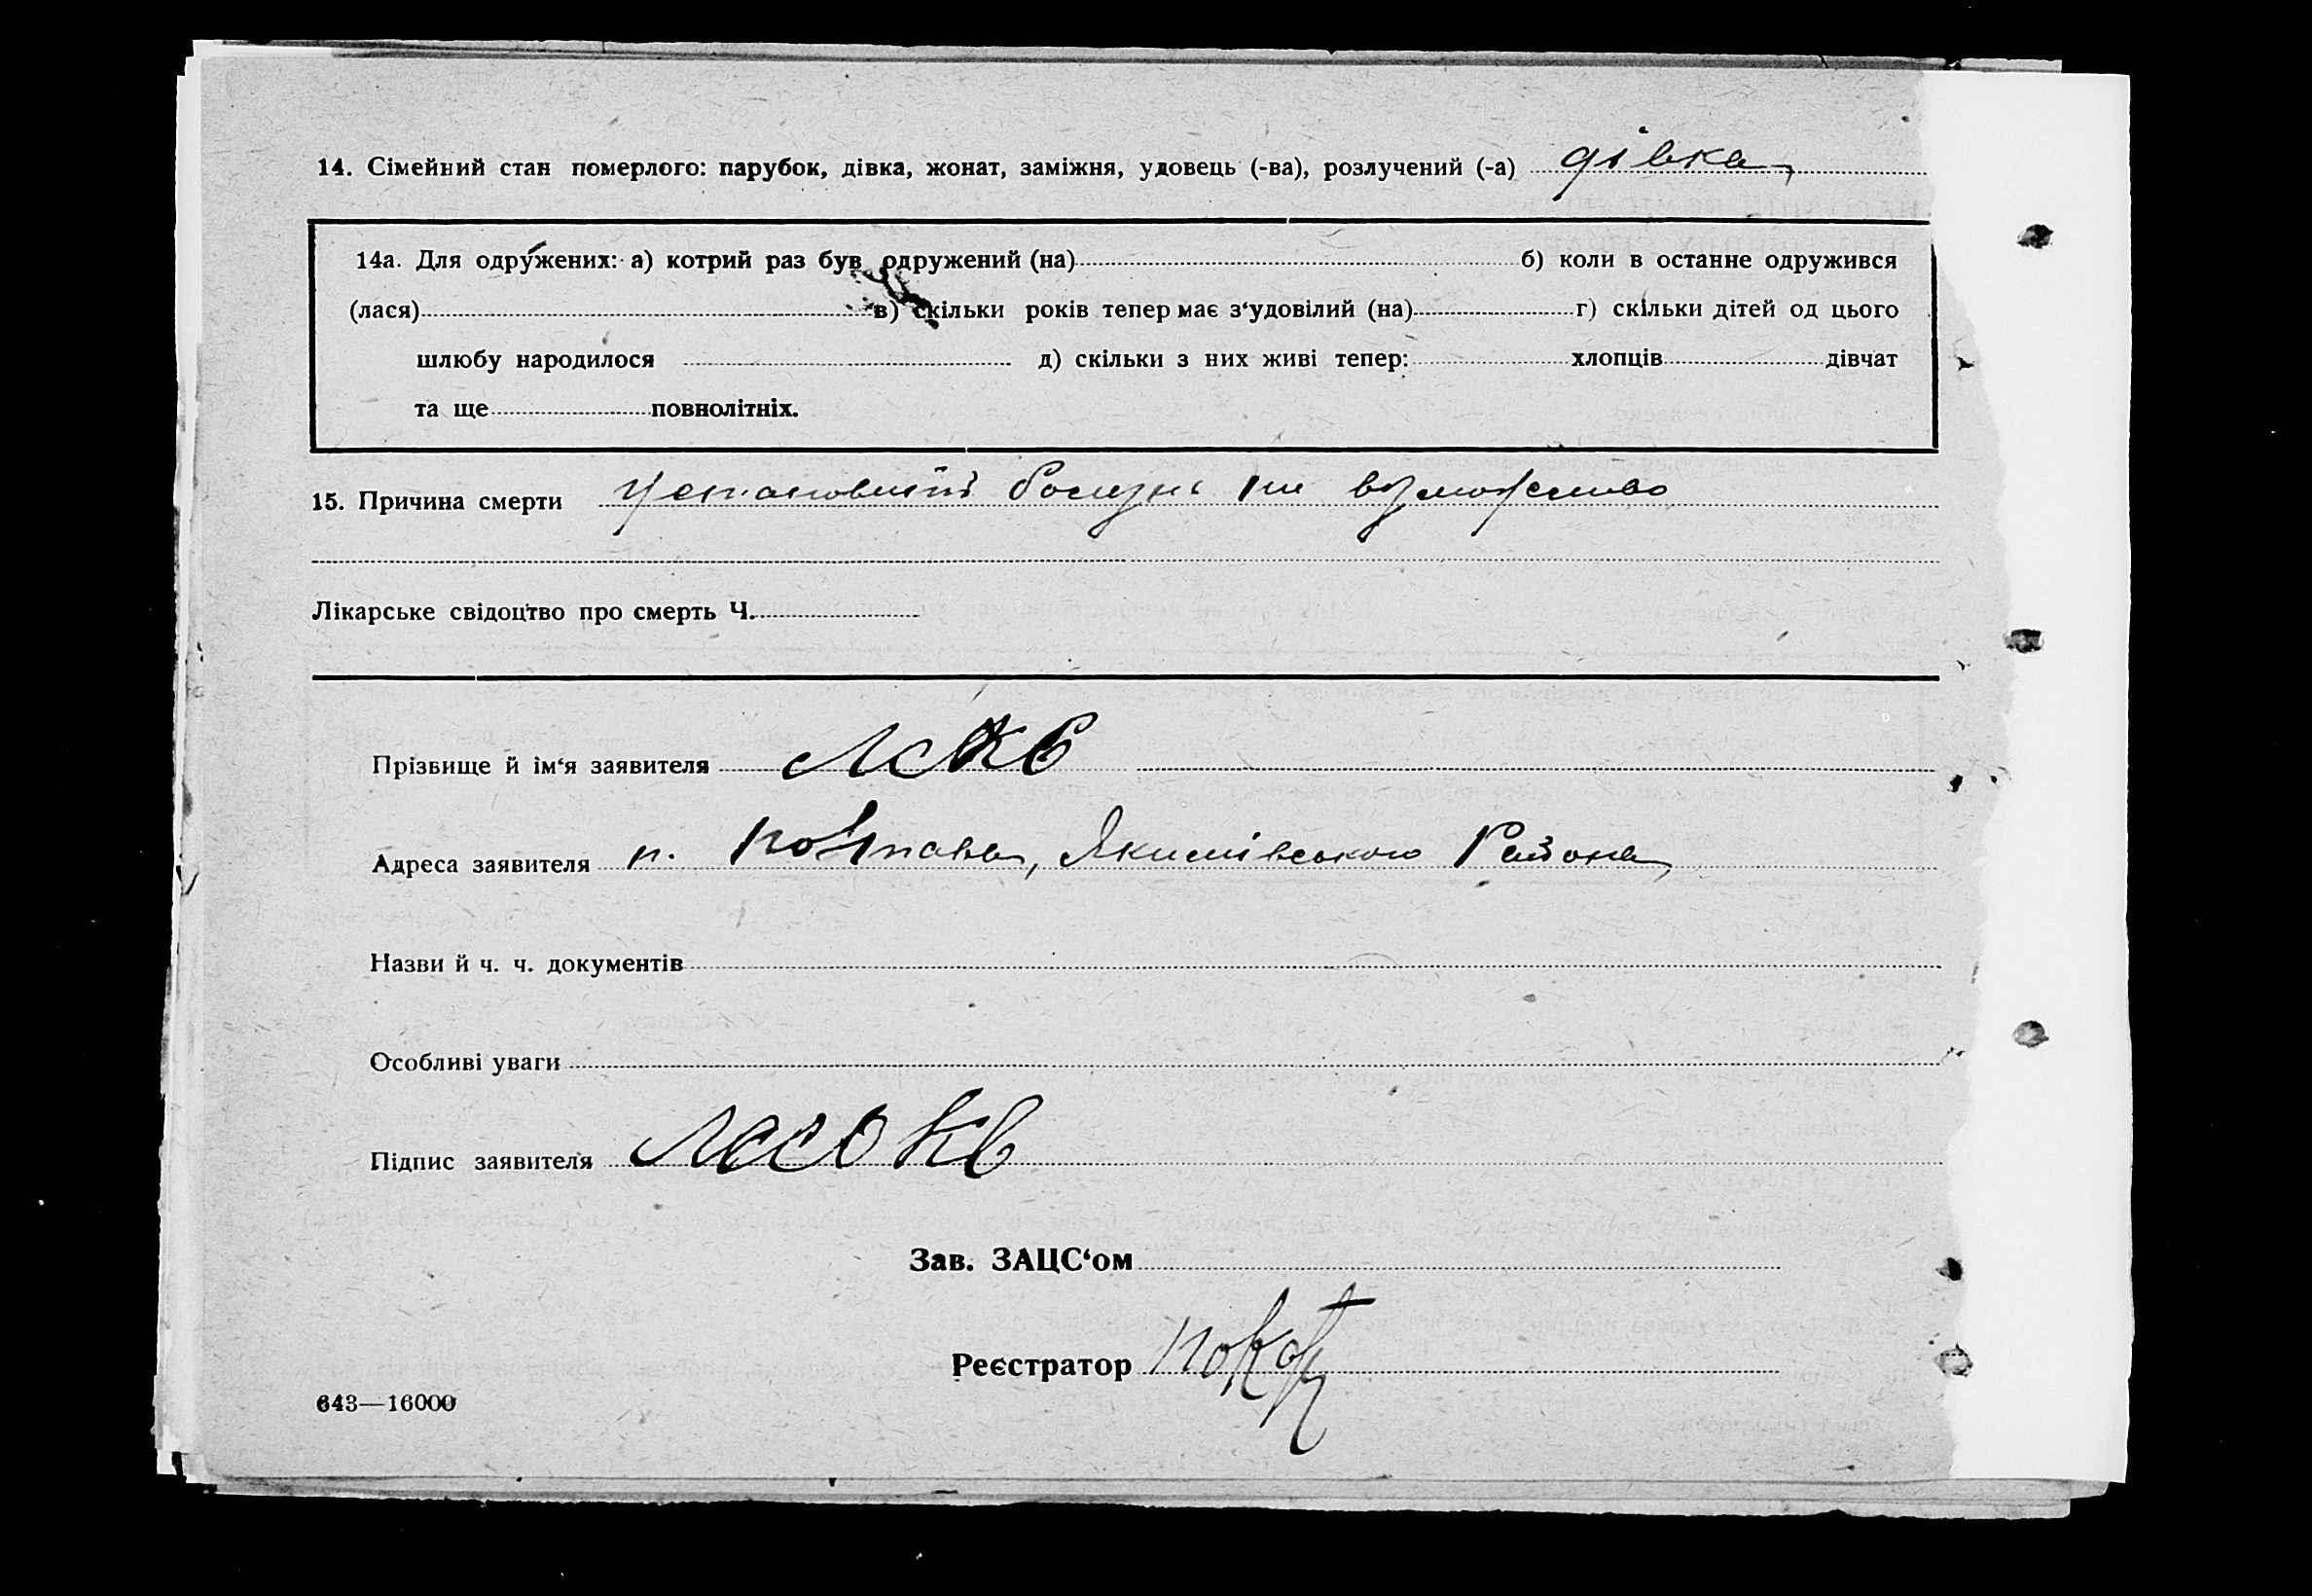 14. Сімейний стан померлого: парубок, дівка, жонат, заміжня, удовець (-ва), розлучений (-а) дівка
14а. Для одружених: а) котрий раз був одружений (на) б) коли в останне одружився
(лася) в) скільки років тепер має з‘удовілий (на) г) скільки дітей од цього
шлюбу народилося д) скільки з них живі тепер: хлопців дівчат
та ще повнолітніх.
15. Причина смерти болизнь ни
Лікарське свідоцтво про смерть Ч.
Прізвище й ім‘я заявителя
Адреса заявителя п. Полтава, Якимівського Района
Назви й ч. ч. документів
Особливі уваги
Підпис заявителя
Зав. ЗАЦС‘ом
Реєстратор
643—16000